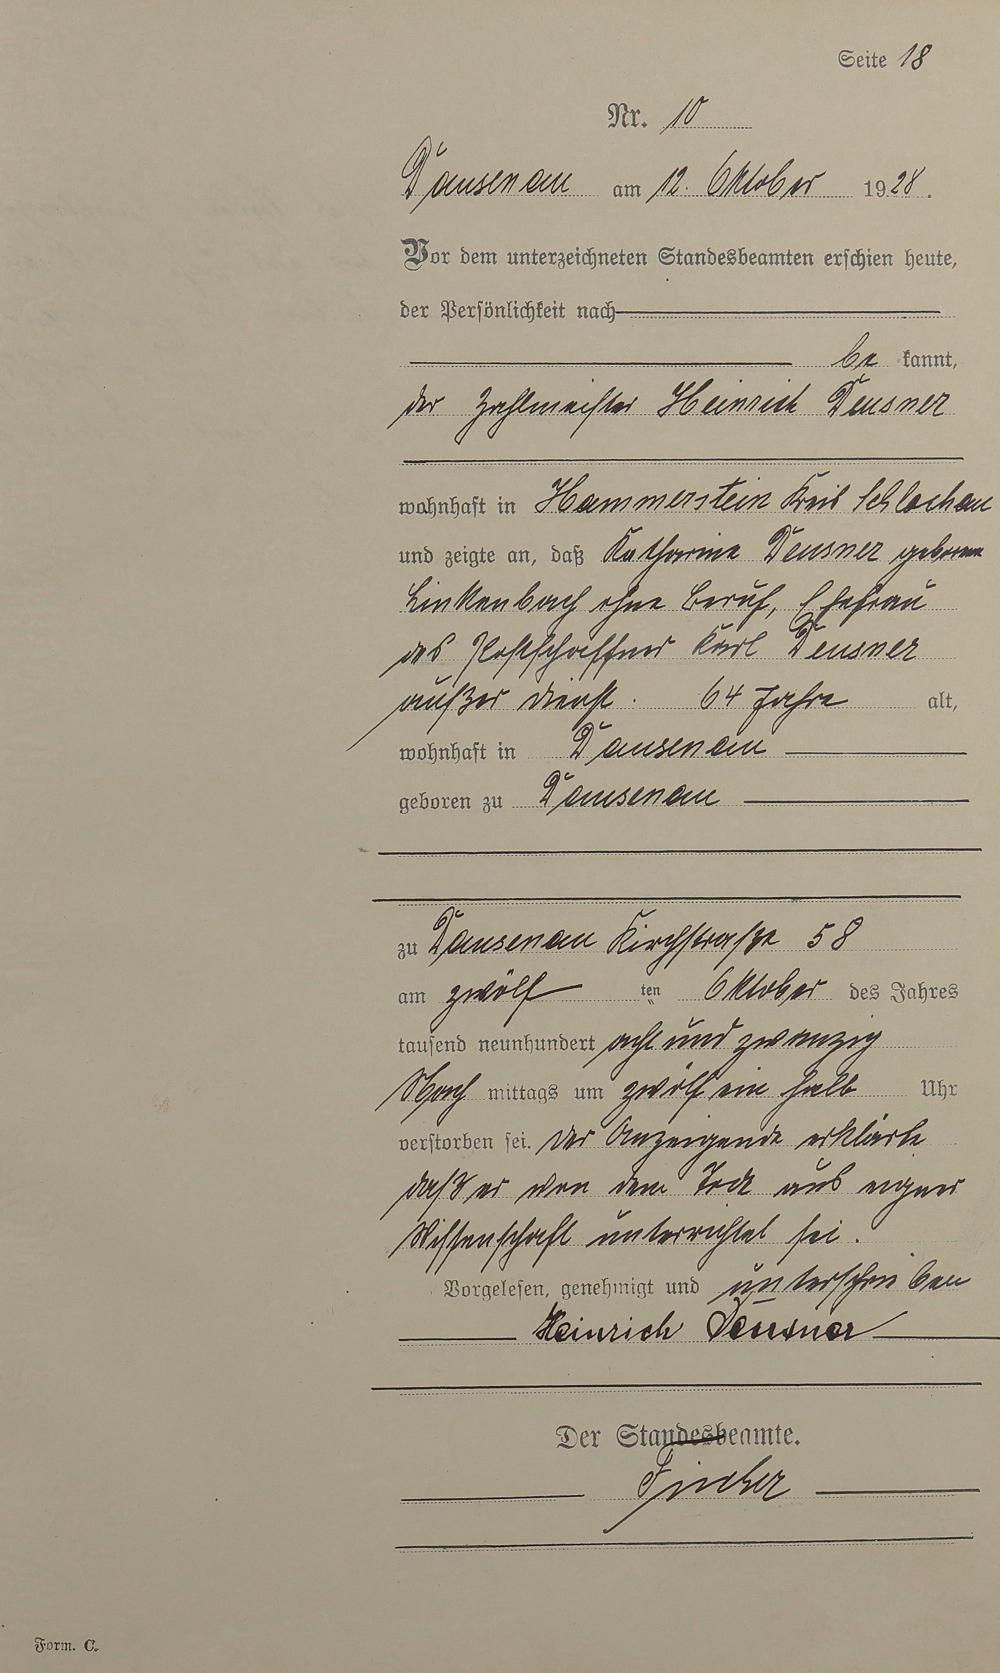 Seite 18
Nr. 10
Dausenau am 12. Oktober 1928.
Vor dem unterzeichneten Standesbeamten erschien heute,
der Persönlichkeit nach
be kannt,
der Zahlmeister Heinrich Deusner
wohnhaft in Hammerstein Kreis Schlochau
und zeigte an, daß Katharina Deusner geborene
Linkenbach ohne Beruf, Ehefrau
des Postschaffner Karl Deusner
außer Dienst. 64 Jahre alt,
wohnhaft in Dausenau
geboren zu Dausenau
zu Dausenau Kirchstraße 58
am zwölf ten Oktober des Jahres
tausend neunhundert acht und zwanzig
Nach mittags um zwölf ein halb Uhr
verstorben sei. Der Anzeigende erklärte
daß er von dem Tode aus eigner
Wissenschaft unterrichtet sei.
Vorgelesen, genehmigt und unterschrieben
Heinrich Deusner
Der Standesbeamte.
Form. C.